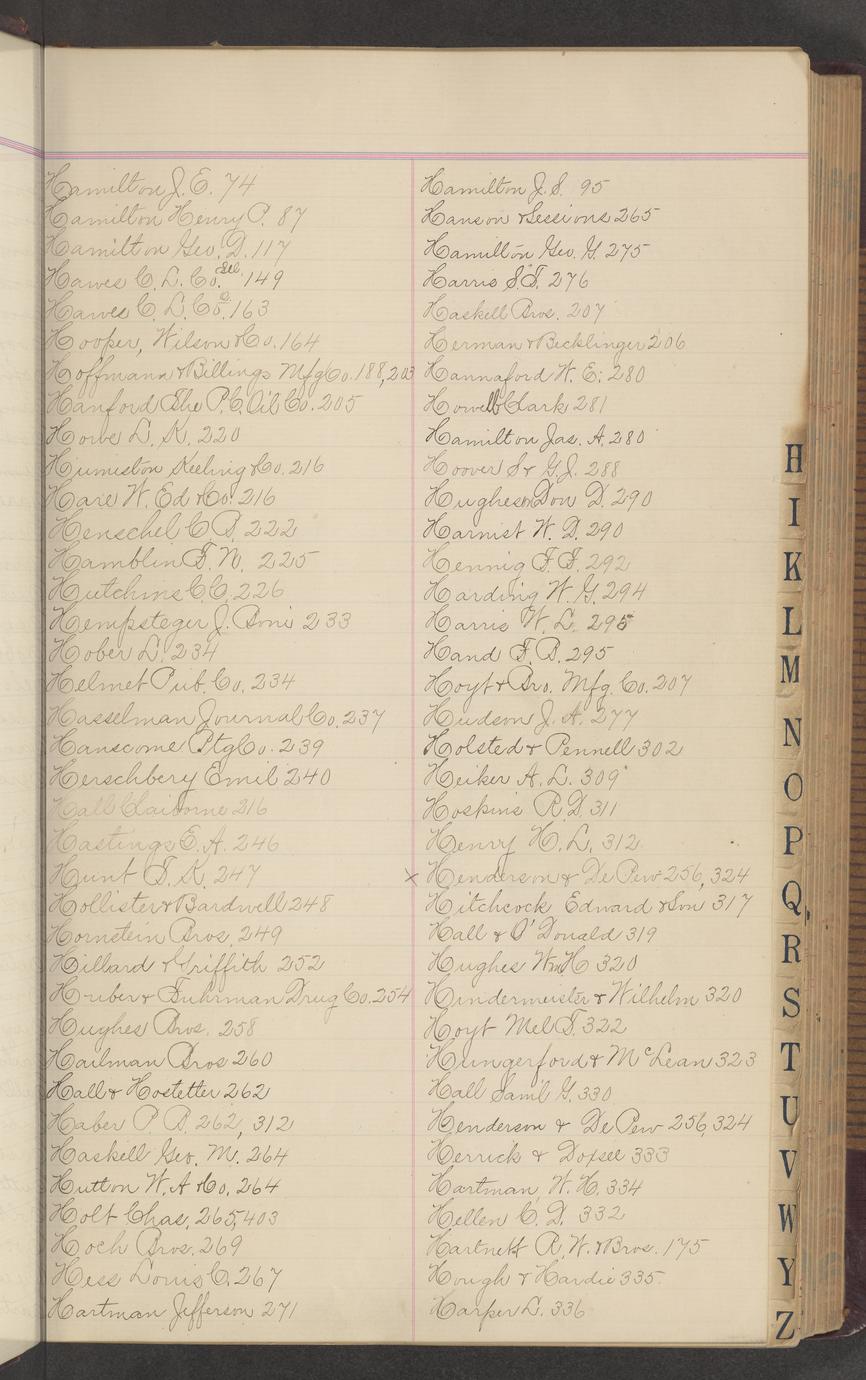 Hamilton J. E. 74
Hamilton Henry P. 87
Hamilton Geo. D. 117
Hawes C. L. Co. 149
Hawes C. L. Co. 163
Hooper, Wilson & Co. 164
Hoffmann & Billings Mfg Co. 188, 203
Hanford The P. C. Oil Co. 205
Howe L. K. 220
Humiston Keeling & Co. 216
Hare W. Ed & Co. 216
Henschel C. B. 222
Hamblin F. N. 225
Hutchins C. C. 226
Hempsteger J. Boni 233
Hober L. 234
Helmet Pub. Co. 234
Hasselman Journal Co. 237
Hanscome Ptg Co. 239
Herschbery Emil 240
Hall Claiborne 216
Hastings E. A. 246
Hunt T. K. 247
Hollister & Bardwell 248
Hornstein Bros. 249
Hillard & Griffith 252
Huber & Fuhrman Drug Co. 254
Hughes Bros. 258
Hailman Bros 260
Hall & Hostetter 262
Haber P. B. 262, 312
Haskell Geo. M. 264
Hutton W. A & Co. 264
Holt Chas. 265, 403
Hoch Bros. 269
Hess Louis C. 267
Hartman Jefferson 271
Hamilton J. S. 95
Hanson & Sessions 265
Hamilton Geo. G. 275
Harris S. T. 276
Haskell Bros. 207
Herman & Becklinger 206
Hannaford W. E. 280
Howell Clark 281
Hamilton Jas. A. 280
Hoover S. & G. J. 288
Hughes Don D. 290
Harnist W. D. 290
Hennig F. F. 292
Harding W. G. 294
Harris W. L. 295
Hand F. B. 295
Hoyt & Bro. Mfg. Co. 207
Hudson J. A. 277
Holsted & Pennell 302
Heiker A. L. 309
Hoskins R. D. 311
Henry H. L. 312
x Henderson & De Pew 256, 324
Hitchcock Edward & Son 317
Hall & O'Donald 319
Hughes Wm H 320
Hindermeister & Wilhelm 320
Hoyt Mel T. 322
Hungerford & McLean 323
Hall Saml G. 330
Henderson & De Pew 256, 324
Herrick & Doxsee 333
Hartman, W. H. 334
Hellen C. D. 332
Hartnett R. W. & Bros. 175
Hough & Hardie 335
Harper L. 336
H
I
K
L
M
N
O
P
Q
R
S
T
U
V
W
Y
Z